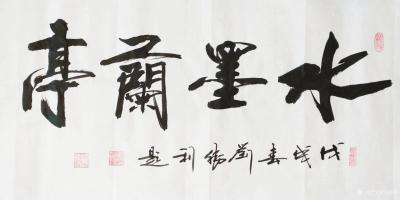 水墨蘭亭
戊戌春劉勝利題